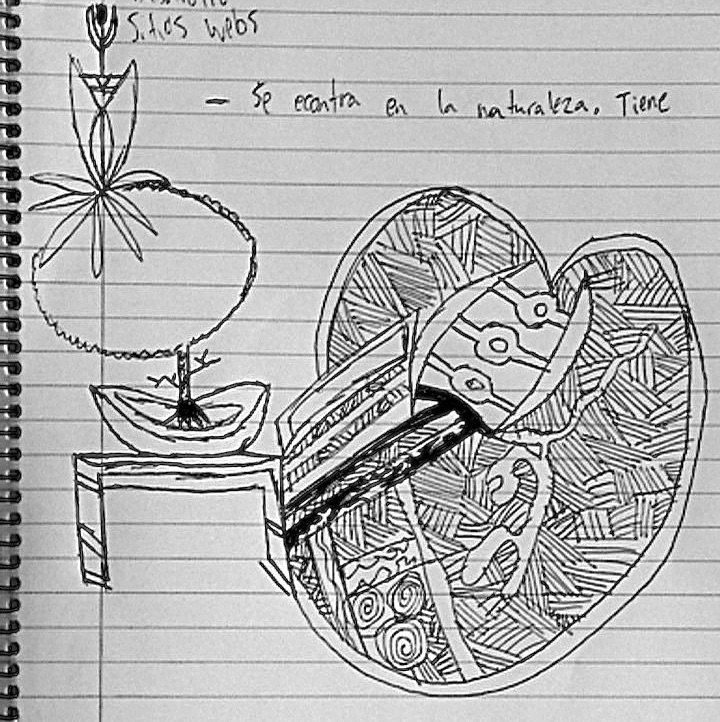 Sitios webs
– Se econtra en la naturaleza. Tiene